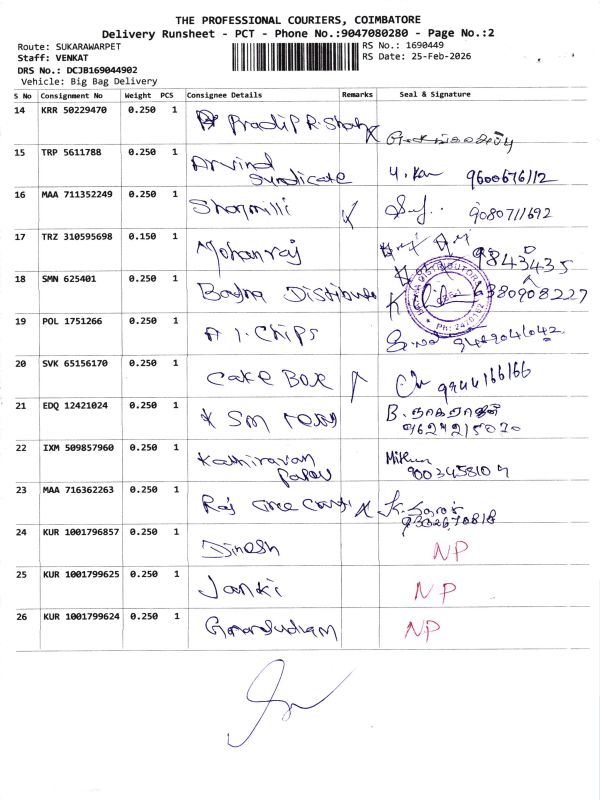 THE PROFESSIONAL COURIERS, COIMBATORE
Delivery Runsheet - PCT - Phone No.:9047080280 - Page No.:2
Route: SUKARAWARPET RS No.: 1690449
Staff: VENKAT RS Date: 25-Feb-2026
DRS No.: DCJB169044902
Vehicle: Big Bag Delivery
S No Consignment No Weight PCS Consignee Details Remarks Seal & Signature
14 KRR 50229470 0.250 1 Pradip R. Shah
15 TRP 5611788 0.250 1 Arvind
Syndicate 9600676112
16 MAA 711352249 0.250 1 Sharmilli 9080711692
17 TRZ 310595698 0.150 1 Mohanraj 9843435
18 SMN 625401 0.250 1 Distributo 6380908227
19 POL 1751266 0.250 1 A 1. Chips
20 SVK 65156170 0.250 1 Cake Box 9944166166
21 EDQ 12421024 0.250 1 K SM B. நாகராஜன்
22 IXM 509857960 0.250 1 Kathiravan Mithun
23 MAA 716362263 0.250 1 Raj
24 KUR 1001796857 0.250 1 Dinesh NP
25 KUR 1001799625 0.250 1 Janki NP
26 KUR 1001799624 0.250 1 NP